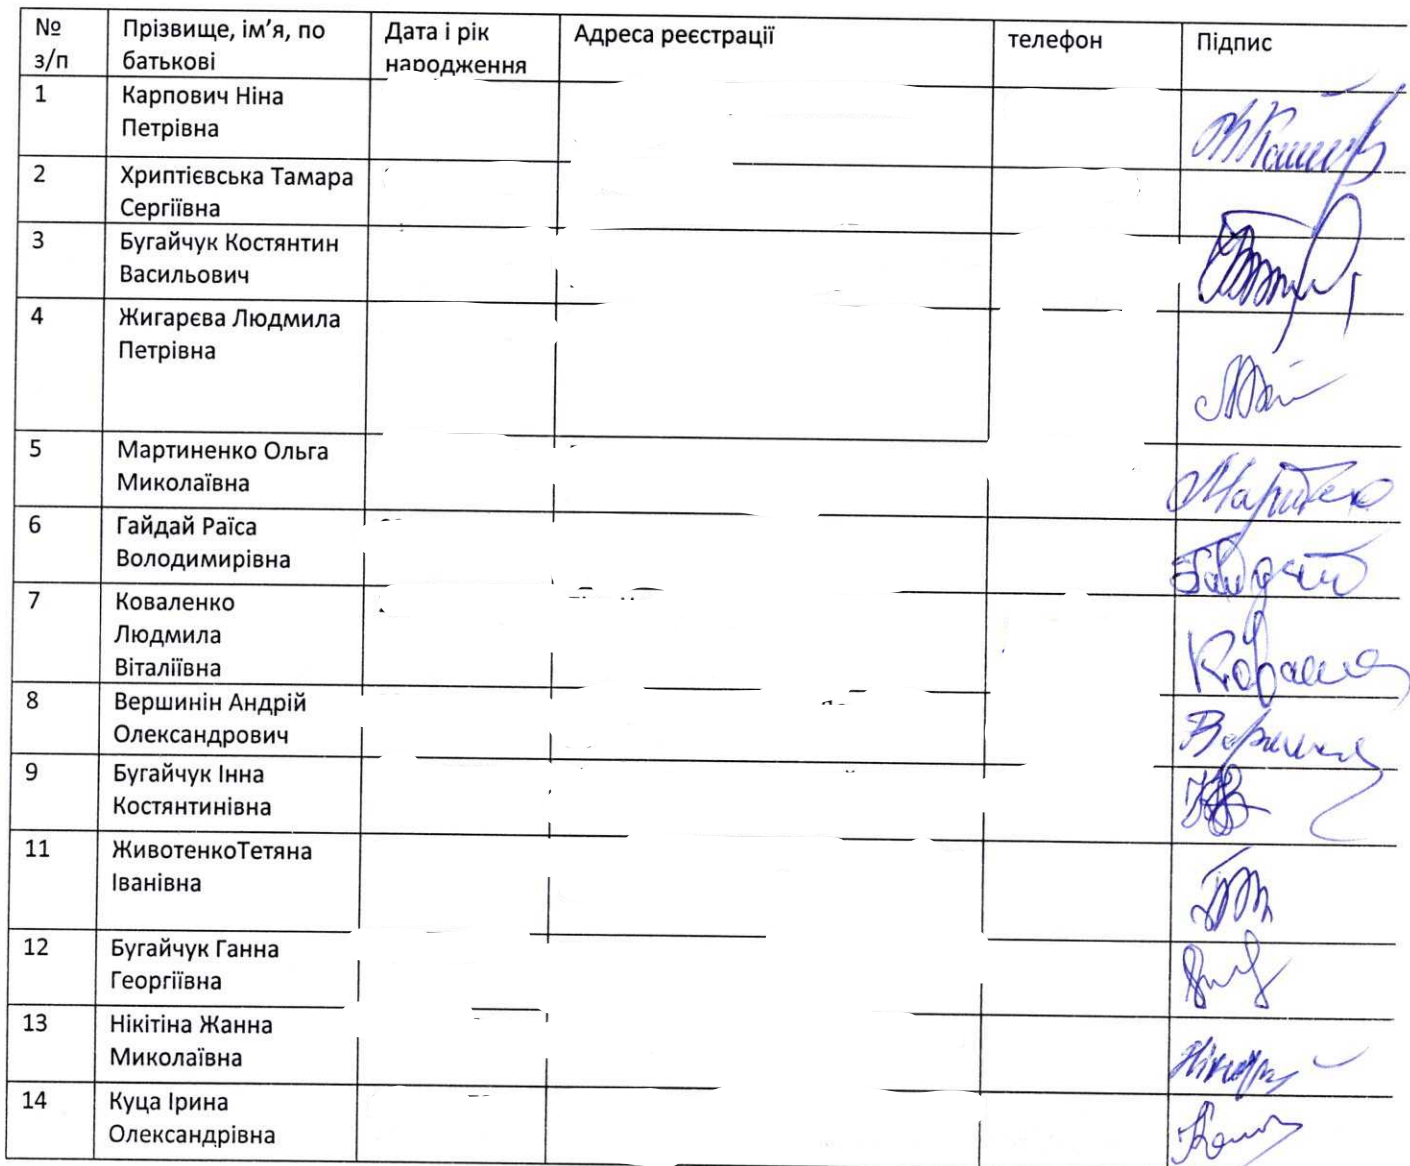 № Прізвище, ім’я, по Дата і рік Адреса реєстрації телефон Підпис
з/п батькові народження
1 Карпович Ніна
Петрівна
2 Хриптієвська Тамара
Сергіївна
3 Бугайчук Костянтин
Васильович
4 Жигарєва Людмила
Петрівна
5 Мартиненко Ольга
Миколаївна
6 Гайдай Раїса
Володимирівна
7 Коваленко
Людмила
Віталіївна
8 Вершинін Андрій
Олександрович
9 Бугайчук Інна
Костянтинівна
11 ЖивотенкоТетяна
Іванівна
12 Бугайчук Ганна
Георгіївна
13 Нікітіна Жанна
Миколаївна
14 Куца Ірина
Олександрівна